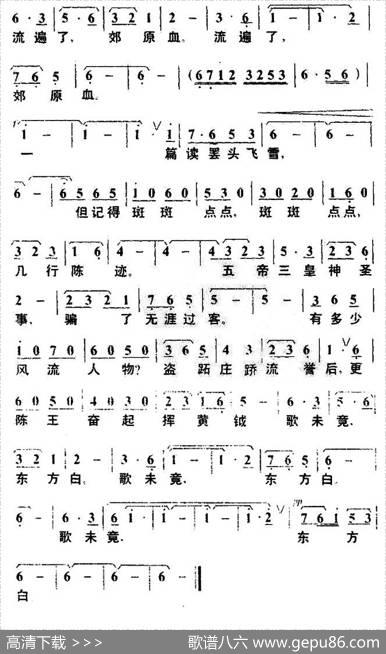 6·3 6·5 321 2- 3·6 1- 1·2
流遍了, 郊原血。流遍了,
765 6- 6- (6712 3253 6·56)
郊原血。
1- 1- 1·1 7·653 6- 6-
一 篇读罢头飞雪,
6- 6565 1060 530 3020 1·60
但记得斑斑点点, 斑斑点点,
323 16 4- 4- 4323 5·3 236
几行陈迹。 五帝三皇神圣
2- 2321 765 5- 5- 365
事, 骗了无涯过客。 有多少
1070 6050 365 43 236 1·6
风流人物? 盗跖庄蹻流誉后, 更
6050 4030 02 30 50 2- 2-
陈王奋起挥黄钺 歌未竟,
321 2- 3·6 1- 1·2 765 6-
东方白。歌未竟, 东方白。
6- 6·3 61 1- 1- 1- 1·2 761 53
歌未竟, 东方
6- 6- 6- 6-
白
高清下载 >>> 歌谱八六 www.gepu86.com